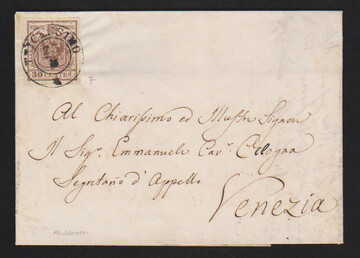 30 CENTES.
7
Al Chiarissimo ed Illustr. Signor
Il Sigr. Emmanuele Cavr. Cicogna
Segretario d'Appello
Venezia